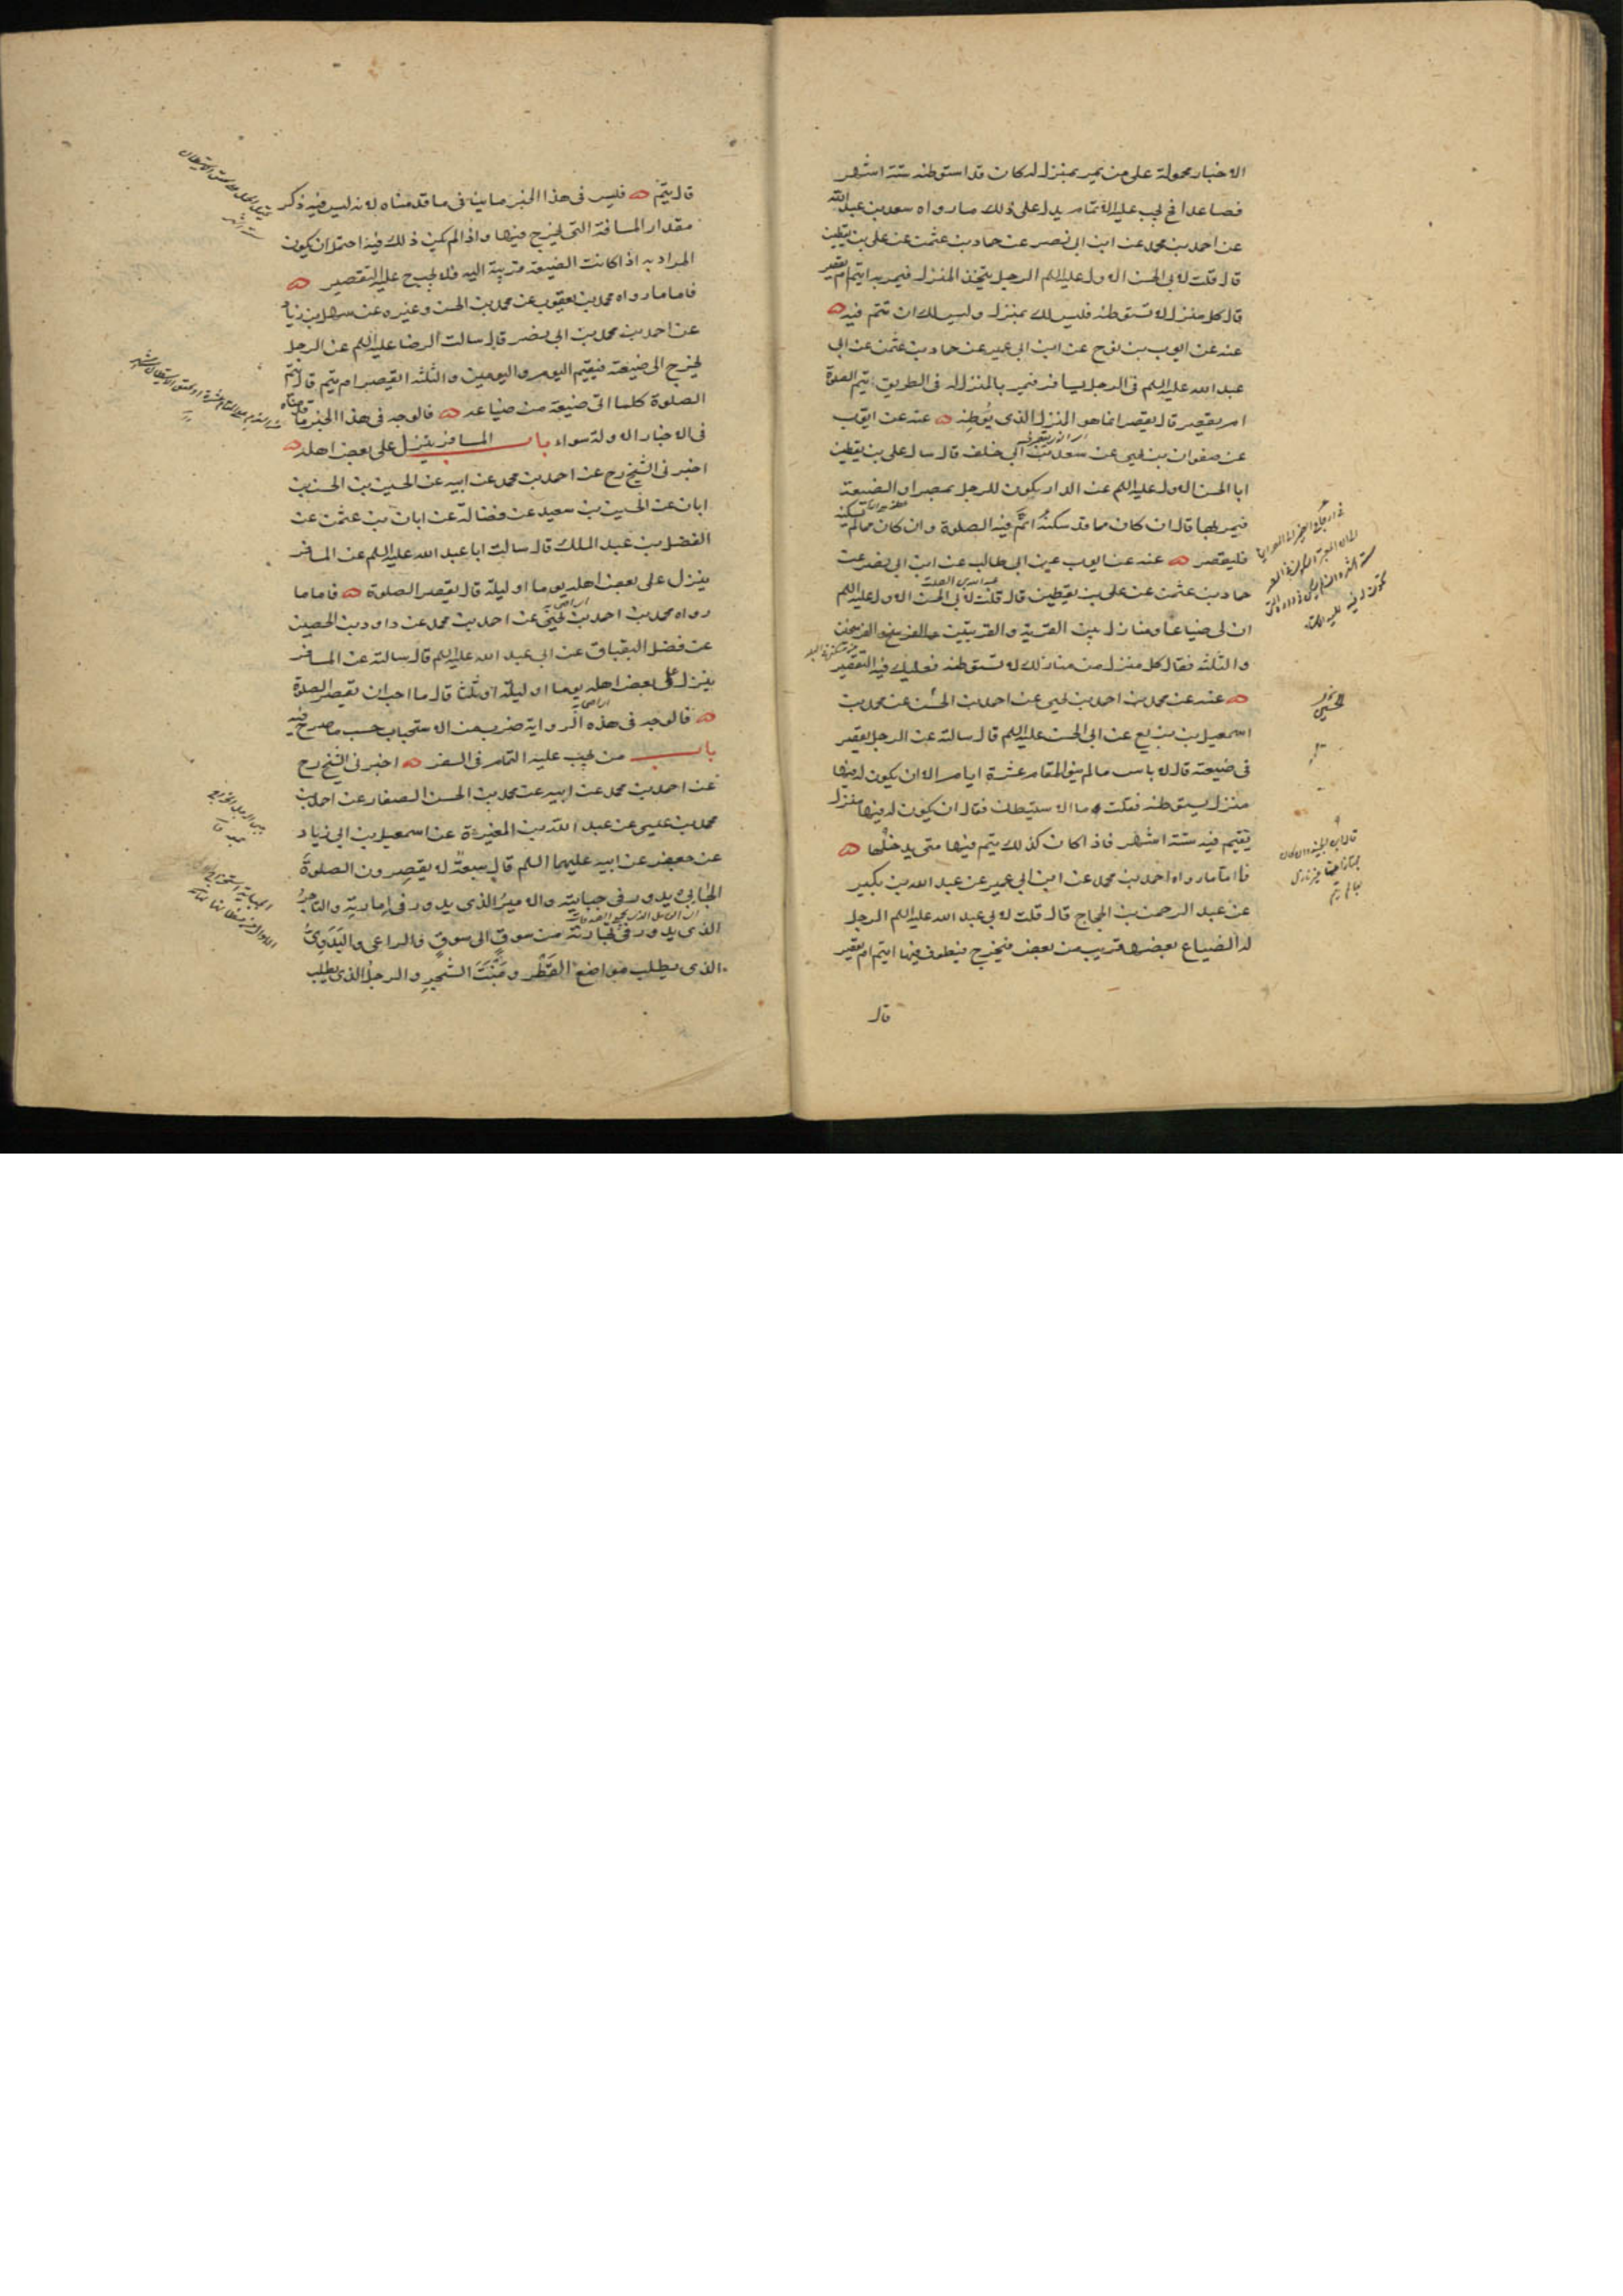 الاخبار محمولة على من يمر بمنزل له كان قد استوطنه ستة اشهر
فصاعدا فح يجب عليه الاتمام يدل على ذلك ما رواه سعد بن عبد الله
عن احمد بن محمد عن ابن ابي نصر عن حماد بن عثمن عن علي بن يقطين
قال قلت لابي الحسن الاول عليه السلم الرجل يتخذ المنزل فيمر به ايتم ام يقصر
قال كل منزل لا تستوطنه فليس لك بمنزل وليس لك ان تتم فيه
عنه عن ايوب بن نوح عن ابن ابي عمير عن حماد بن عثمن عن ابي
عبد الله عليه السلم في الرجل يسافر فيمر بالمنزل له في الطريق يتم الصلوة
ام يقصر قال يقصر انما هو المنزل الذي يُوطنه عنه عن ايوب
عن صفوان بن يحيى عن سعد بن ابي خلف قال سال علي بن يقطين
ابا الحسن الاول عليه السلم عن الدار يكون للرجل بمصر او الضيعة
فيمر بها قال ان كان مما قد سكنه اتم فيه الصلوة وان كان مما لم يسكنه
فليقصر عنه عن ايوب عن ابي طالب عن ابن ابي نصر عن
حماد بن عثمن عن علي بن يقطين قال قلت لابي الحسن الاول عليه السلم
ان لي ضياعا ومنازل بين القرية والقريتين الفرسخ والفرسخان
والثلثة فقال كل منزل من منازلك لا تستوطنه فعليك فيه التقصير
عنه عن محمد بن احمد بن يحيى عن احمد بن الحسن عن محمد بن
اسمعيل بن بزيع عن ابي الحسن عليه السلم قال سالته عن الرجل يقصر
في ضيعته قال لا باس ما لم ينو المقام عشرة ايام الا ان يكون له فيها
منزل يستوطنه فقلت ما الاستيطان فقال ان يكون له فيها منزل
يقيم فيه ستة اشهر فاذا كان كذلك يتم فيها متى يدخلها
فاما ما رواه احمد بن محمد عن ابن ابي عمير عن عبد الله بن بكير
عن عبد الرحمن بن الحجاج قال قلت لابي عبد الله عليه السلم الرجل
له الضياع بعضها قريب من بعض فيخرج فيطوف فيها ايتم ام يقصر
قال
قال يتم فليس في هذا الخبر ما ينافي ما قدمناه لانه ليس فيه ذكر
مقدار المسافة التي يخرج فيها واذا لم يكن ذلك فيه احتمل ان يكون
المراد به اذا كانت الضيعة قريبة اليه فلا يجب ح عليه التقصير
فاما ما رواه محمد بن يعقوب عن محمد بن الحسن وغيره عن سهل بن زياد
عن احمد بن محمد بن ابي نصر قال سالت الرضا عليه السلم عن الرجل
يخرج الى ضيعته فيقيم اليوم واليومين والثلثة ايقصر ام يتم قال يتم
الصلوة كلما اتى ضيعة من ضياعه فالوجه في هذا الخبر ما قلناه
في الاخبار الاولة سواء باب المسافر ينزل على بعض اهله
اخبرني الشيخ رح عن احمد بن محمد عن ابيه عن الحسين بن الحسن بن
ابان عن الحسين بن سعيد عن فضالة عن ابان بن عثمن عن
الفضل بن عبد الملك قال سالت ابا عبد الله عليه السلم عن المسافر
ينزل على بعض اهله يوما او ليلة قال يقصر الصلوة فاما ما
رواه محمد بن احمد بن يحيى عن احمد بن محمد عن داود بن الحصين
عن فضل البقباق عن ابي عبد الله عليه السلم قال سالته عن المسافر
ينزل على بعض اهله يوما او ليلة او ثلثا قال ما احب ان يقصر الصلوة
فالوجه في هذه الرواية ضرب من الاستحباب حسب ما صرح فيه
باب من يجب عليه التمام في السفر اخبرني الشيخ رح
عن احمد بن محمد عن ابيه عن محمد بن الحسن الصفار عن احمد بن
محمد بن عيسى عن عبد الله بن المغيرة عن اسمعيل بن ابي زياد
عن جعفر عن ابيه عليهما السلم قال سبعةٌ لا يقصرون الصلوةَ
الجابيُ يدور في جبايته والاميرُ الذي يدور في امارته والتاجرُ
الذي يدور في تجارته من سوقٍ الى سوقٍ والراعي والبَدَويُّ
الذي يطلب مواضعَ القَطْر ومَنْبَتَ الشجرِ والرجلُ الذي يطلب